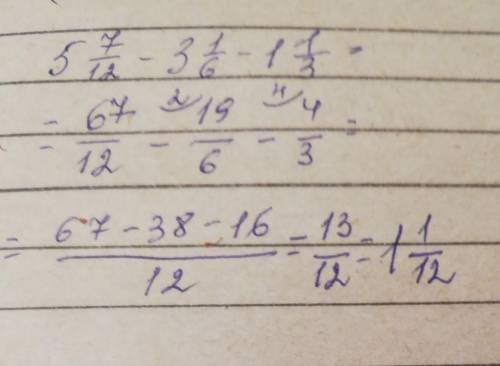 5 7/12 - 3 1/6 - 1 1/3 =
= 67/12 - ²⁾19/6 - ⁴⁾4/3 =
= (67 - 38 - 16)/12 = 13/12 = 1 1/12